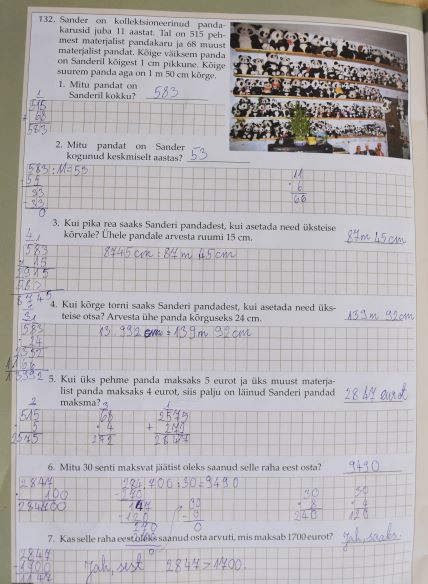 132. Sander on kollektsioneerinud panda-
karusid juba 11 aastat. Tal on 515 peh-
mest materjalist pandakaru ja 68 muust
materjalist pandat. Kõige väiksem panda
on Sanderil kõigest 1 cm pikkune. Kõige
suurem panda aga on 1 m 50 cm kõrge.
1. Mitu pandat on
Sanderil kokku? 583
515
+ 68
583
2. Mitu pandat on Sander
kogunud keskmiselt aastas? 53
583 : 11 = 53
- 55
33
- 33
0
11
· 6
66
3. Kui pika rea saaks Sanderi pandadest, kui asetada need üksteise
kõrvale? Ühele pandale arvesta ruumi 15 cm. 87 m 45 cm
583
· 15
2915
583
8745
8745 cm = 87 m 45 cm
4. Kui kõrge torni saaks Sanderi pandadest, kui asetada need üks-
teise otsa? Arvesta ühe panda kõrguseks 24 cm. 139 m 92 cm
583
· 24
2332
1166
13992
13 992 cm = 139 m 92 cm
5. Kui üks pehme panda maksaks 5 eurot ja üks muust materja-
list panda maksaks 4 eurot, siis palju on läinud Sanderi pandad
maksma? 2847 eurot
515
· 5
2575
68
· 4
272
2575
+ 272
2847
6. Mitu 30 senti maksvat jäätist oleks saanud selle raha eest osta? 9490
2847
· 100
284700
284 700 : 30 = 9490
- 270
147
270
0
30
· 8
240
30
· 4
120
7. Kas selle raha eest oleks saanud osta arvuti, mis maksab 1700 eurot? Jah, saaks.
2847
- 1700
1147
Jah, sest 2847 > 1700.